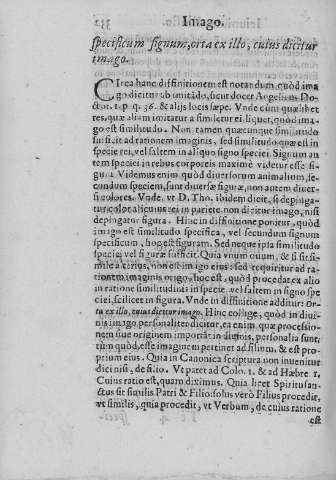 Imago.
specificum signum, orta ex illo, cuius dicitur
imago.
Circa hanc diffinitionem est notandum, quòd ima
go dicitur ab imitãdo, sicut docet Angelicus Do-
ctor. 1. p. q. 36. & alijs locis sæpe. Vnde cum quælibet
res, quæ aliam imitatur a similetur ei. liquet, quòd ima
go est similitudo. Non tamen quæcunque similitudo
sufficit ad rationem imaginis, sed similitudo quæ est in
specie rei, vel saltem in aliquo signo speciei. Signum au
tem speciei in rebus corporeis maximè videtur esse fi-
gura. Videmus enim, quòd diuersorum animalium, se-
cundum speciem, sunt diuersæ figuræ, non autem diuer-
si colores. Vnde. vt D. Tho. ibidem dicit, si depinga-
tur color alicuius rei in pariete non dicitur imago, nisi
depingatur figura. Hinc in diffinitione ponitur, quòd
imago est similitudo specifica, vel secundum signum
specificum, hoc est figuram. Sed neque ipsa similitudo
speciei vel figuræ sufficit. Quia vnum ouum, & si sit si-
mile alterius, non est imago eius: sed requiritur ad ra-
tionem imaginis origo, hoc est, quòd procedat ex alio
in ratione similitudinis in specie, vel saltem in signo spe
ciei, scilicet in figura. Vnde in diffinitione additur: Or-
ta ex illo, cuius dicitur imago. Hinc collige, quòd in diui-
nis imago personaliter dicitur, ea enim, quæ processio-
nem siue originem important in diuinis, personalia sunt,
tum quòd, esse imaginem pertinet ad filium, & est pro-
prium eius. Quia in Canonica scriptura non inuenitur
dici nisi, de filio. Vt patet ad Colo. 1. & ad Hæbre. 1.
Cuius ratio est, quam diximus. Quia licet Spiritus san-
ctus sit similis Patri & Filio: solus verò Filius procedit,
vt similis, quia procedit, vt Verbum, de cuius ratione
est